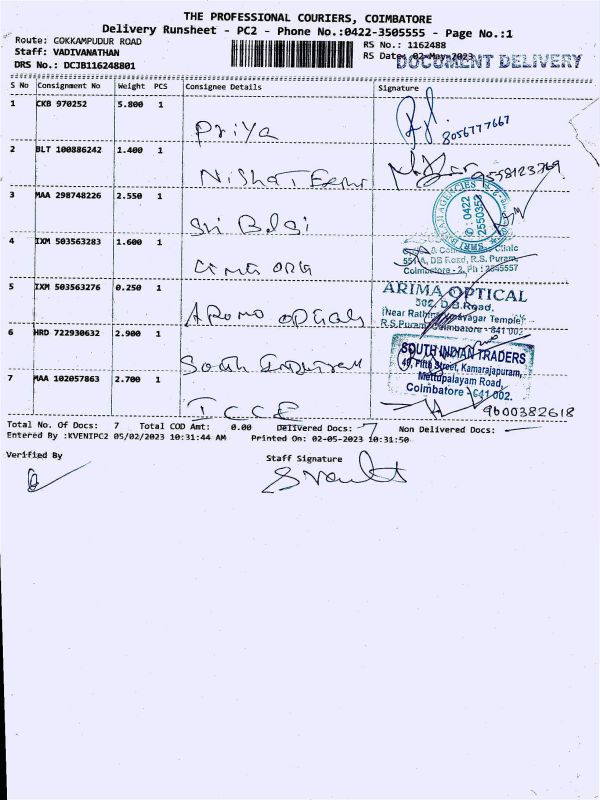 THE PROFESSIONAL COURIERS, COIMBATORE
Delivery Runsheet - PC2 - Phone No.:0422-3505555 - Page No.:1
Route: COKKAMPUDUR ROAD
RS No.: 1162488
Staff: VADIVANATHAN
RS Date: 02-May-2023
DOCUMENT DELIVERY
DRS No.: DCJB116248801
S No Consignment No Weight PCS Consignee Details Signature
1 CKB 970252 5.800 1
Priya
8056777667
2 BLT 100886242 1.400 1
3 MAA 298748226 2.550 1
Sri Balaji
0422
2550353
4 IXM 503563283 1.600 1
Clinic
551-A, DB Road, R.S. Puram,
Coimbatore - 2, Ph : 2545557
5 IXM 503563276 0.250 1
ARIMA OPTICAL
502, D.B.Road,
(Near Rathna Vinayagar Temple)
R.S.Puram, Coimbatore - 641 002
6 HRD 722930632 2.900 1
South
SOUTH INDIAN TRADERS
49, Fifth Street, Kamarajapuram,
Mettupalayam Road,
Coimbatore - 641 002.
7 MAA 102057863 2.700 1
I C C E
9600382618
Total No. Of Docs: 7 Total COD Amt: 0.00 Delivered Docs: 7 Non Delivered Docs: —
Entered By :KVENIPC2 05/02/2023 10:31:44 AM Printed On: 02-05-2023 10:31:50
Verified By
Staff Signature